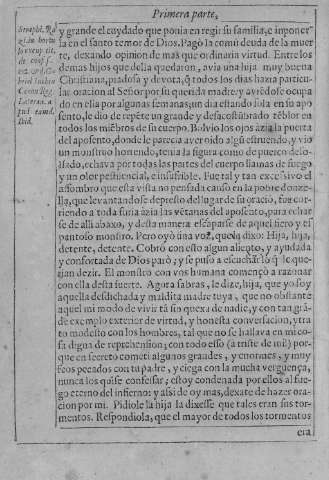 Primera parte,
y grande el cuydado que ponia en regir su familia, e imponer
la en el santo temor de Dios. Pagò la comū deuda de la muer
te, dexando opinion de mas que ordinaria virtud. Entre los
demas hijos que della quedaron, avia una hija muy buena
Christiana, piadosa y devota, q̄ todos los dias hazia particu-
lar oracion al Señor por su querida madre, y aviēdose ocupa
do en ella por algunas semanas; un dia estando sola en su apo
sento, le dio de repēte un grande y desacostūbrado tēblor en
todos los miēbros de su cuerpo. Bolvio los ojos azia la puerta
del aposento, donde le parecia aver oido algū estruendo, y vio
un monstro horrendo, tenia la figura como de puerco deso-
llado, echava por todas las partes del cuerpo llamas de fuego
y un olor pestilencial, e insufrible. Fue tal y tan excessivo el
assombro que esta vista no pensada causò en la pobre donze-
lla, que levantandose de presto del lugar de su oraciō, fue cor-
riendo a toda furia azia las vētanas del aposento, para echar
se de alli abaxo, y desta manera escaparse de aquel fiero y es
pantoso monstro. Pero oyò una voz, que la dixo: Hija, hija,
detente, detente. Cobrò con esto algun aliento, y ayudada
y confortada de Dios parò; y se puso a escuchar lo q̄ le que-
rian dezir. El monstro con vos humana començò a razonar
con ella desta suerte. Agora sabras, le dize, hija, que yo soy
aquella desdichada y maldita madre tuya, que no obstante
aquel mi modo de vivir tā sin quexa de nadie, y con tan grā-
de exemplo exterior de virtud, y honesta conversacion, y tra
to modesto con los hombres, tal que no se hallava en mi co-
sa digna de reprehension; con todo esso (a triste de mi!) por-
que en secreto cometi algunos grandes, y enormes, y muy
feos pecados con tu padre, y ciega con la mucha vergüença,
nunca los quise confessar; estoy condenada por ellos al fue-
go eterno del infierno: y assi de oy mas, dexate de hazer ora-
cion por mi. Pidiole la hija la dixesse que tales eran sus tor-
mentos. Respondiola, que el mayor de todos los tormentos
era